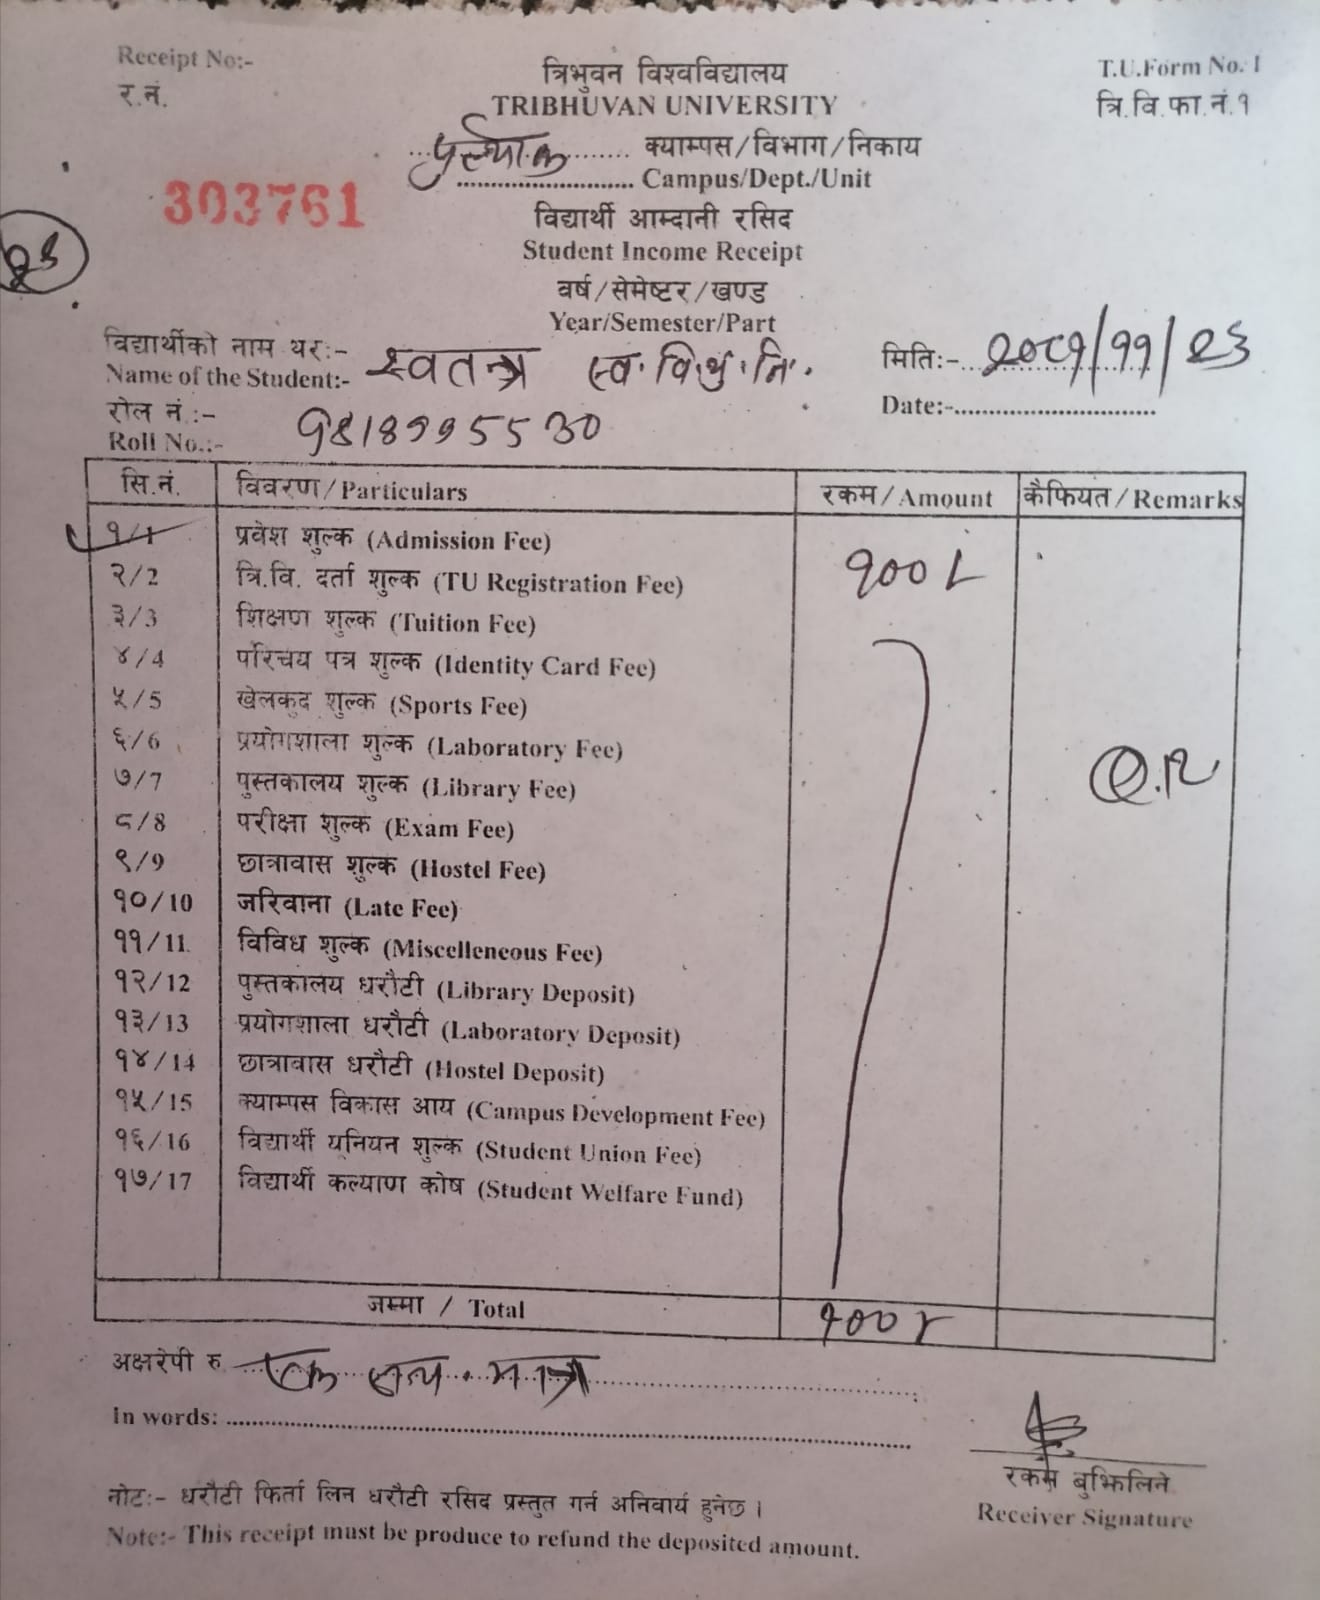 Receipt No:-
र.नं.
त्रिभुवन विश्वविद्यालय
TRIBHUVAN UNIVERSITY
T.U.Form No. 1
त्रि.वि.फा.नं.१
क्याम्पस/विभाग/निकाय
Campus/Dept./Unit
303761
विद्यार्थी आम्दानी रसिद
Student Income Receipt
वर्ष/सेमेष्टर/खण्ड
Year/Semester/Part
विद्यार्थीको नाम थरः-
Name of the Student:- स्वतन्त्र स्व.वि.यु.नि.
मिति:- २०८१/११/२६
Date:-
रोल नं.:-
Roll No.:-
सि.नं. विवरण/Particulars रकम/Amount कैफियत/Remarks
१/1 प्रवेश शुल्क (Admission Fee)
२/2 त्रि.वि. दर्ता शुल्क (TU Registration Fee) १००/-
३/3 शिक्षण शुल्क (Tuition Fee)
४/4 परिचय पत्र शुल्क (Identity Card Fee)
५/5 खेलकुद शुल्क (Sports Fee)
६/6 प्रयोगशाला शुल्क (Laboratory Fee)
Q.R
७/7 पुस्तकालय शुल्क (Library Fee)
८/8 परीक्षा शुल्क (Exam Fee)
९/9 छात्रावास शुल्क (Hostel Fee)
१०/10 जरिवाना (Late Fee)
११/11 विविध शुल्क (Miscelleneous Fee)
१२/12 पुस्तकालय धरौटी (Library Deposit)
१३/13 प्रयोगशाला धरौटी (Laboratory Deposit)
१४/14 छात्रावास धरौटी (Hostel Deposit)
१५/15 क्याम्पस विकास आय (Campus Development Fee)
१६/16 विद्यार्थी यनियन शुल्क (Student Union Fee)
१७/17 विद्यार्थी कल्याण कोष (Student Welfare Fund)
जम्मा / Total १००/-
अक्षरेपी रु एक सय मात्र
In words:
रकम बुझिलिने
Receiver Signature
नोटः- धरौटी फिर्ता लिन धरौटी रसिद प्रस्तुत गर्न अनिवार्य हुनेछ ।
Note:- This receipt must be produce to refund the deposited amount.